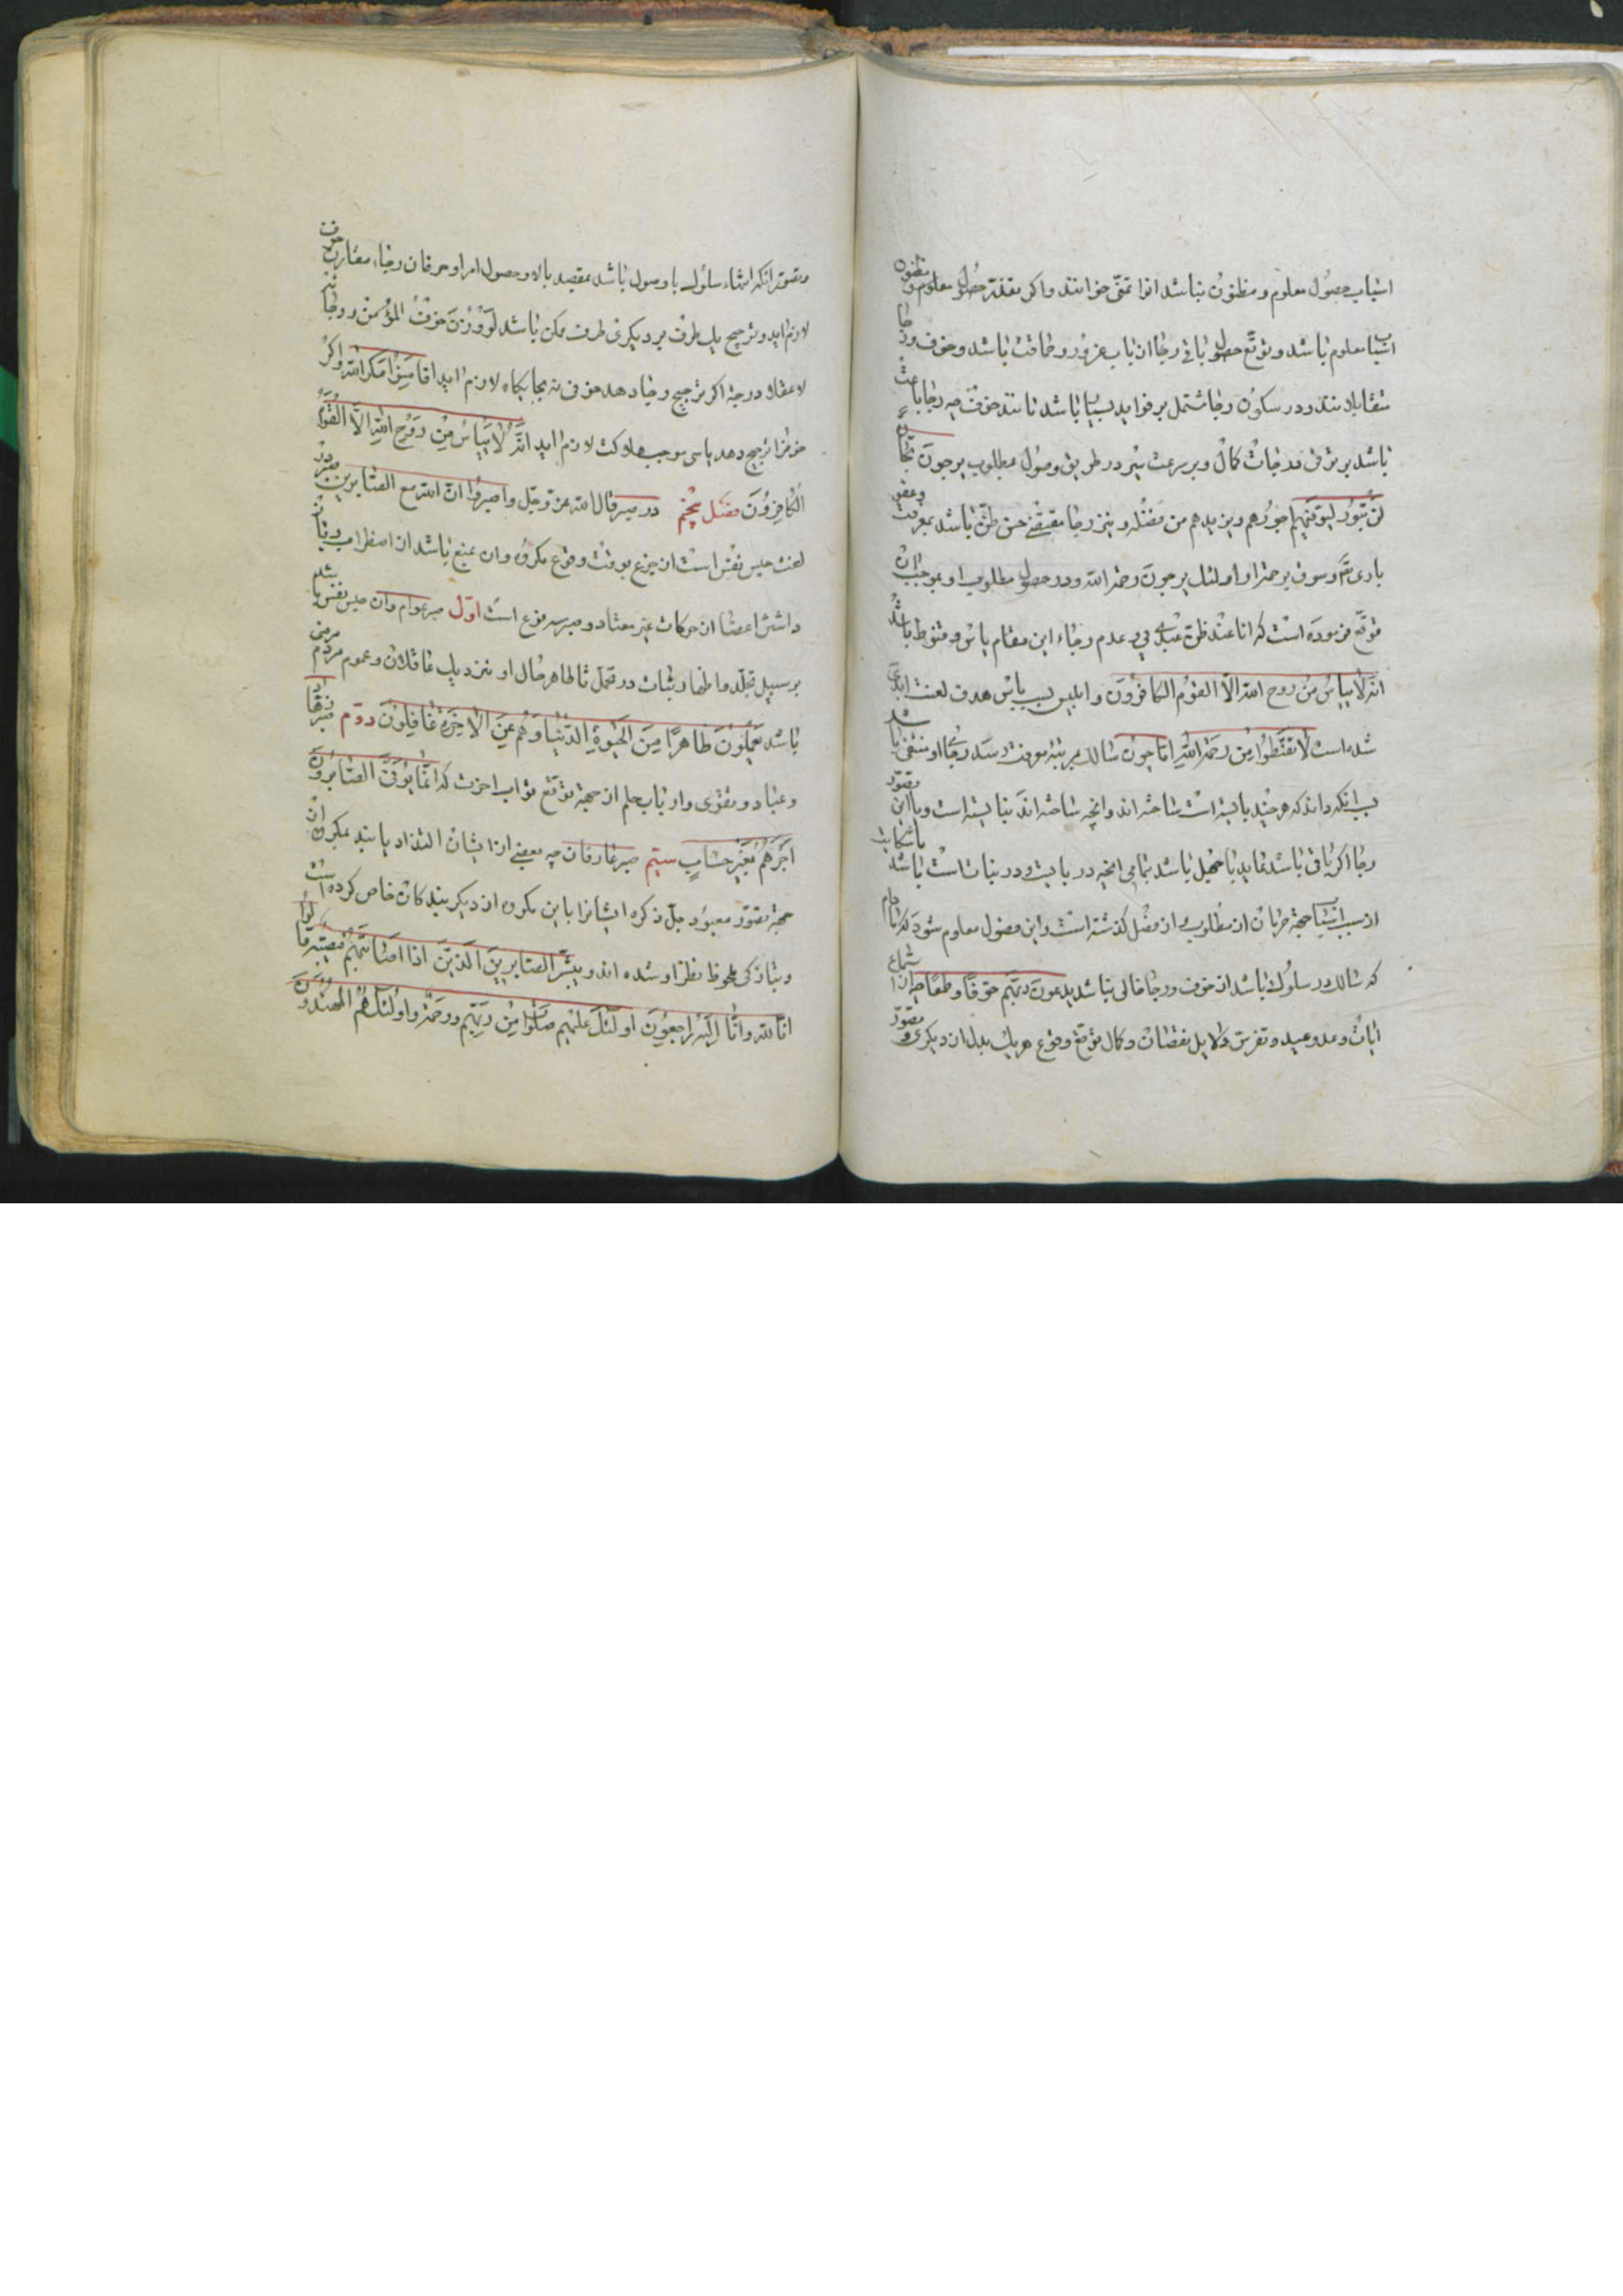 اسباب حصول معلوم و مظنون نباشد انرا تمنّی خوانند و اکر تقدیر حصول معلوم و مظنون
اسباب معلوم باشد و توقّع حصول باقی رجا ان باب غرور و حماقت باشد و خوف و رجا
متقابلانند و در سکون رجا مشتمل بر فواید بسیار باشد مانند خوف چه رجا باعث
باشد بر ترقی در درجات کمال و بر سرعت سیر در طریق وصول بمطلوب یرجون تجارة
لن تبور لیوفّیهم اجورهم و یزیدهم من فضله و نیز رجا مقتضی حسن ظنّ باشد بمغفرت و عفو
باری تعّ و وثوق برحمة او اولئک یرجون رحمة الله و در حصول مطلوب او بموجب ان
توقّع فرموده است که انا عند ظنّ عبدی بی و عدم رجاء این مقام یاس و قنوط باشد
انّه لا ییاس من روح الله الّا القوم الکافرون و ابلیس بسبب یاس هدف لعنت ابدی
شده است لا تقنطوا من رحمة الله امّا چون سالک بمرتبۀ معرفت رسد رجای او منتفی باشد
بسبب انکه داند که هرچند بایسته است ساخته اند و انچه ساخته اند نبایسته است و با این تصوّر
رجا اکر باقی باشد یا جهل باشد بتمامی انچه در بایست و در نبایست باشد یا شکایت
از سبب اسباب جهة حرمان از مطلوب از فصل کذشته است و این فصول معلوم شود که مادام
که سالک در سلوک باشد از خوف و رجا خالی نباشد یدعون ربّهم خوفاً و طمعاً چه از استماع
ایات وعد و وعید و تفرّس دلایل نقصان و کمال و توقّع وقوع هریک بدل ان دیکری و تصوّر
و تصوّر انکه انتهاء سلوک با وصول باشد بمقصد یا لا وصول امر او حرمان رجا، مقارنت خوف
لازم اید و ترجیح یک طرف بر دیکری طرف ممکن نباشد لو وزن خوف المؤمن و رجائه
لاعتدلا در جه اکر ترجیح رجا دهد خوفی نه بجایکاه لازم اید افامنوا مکر الله و اکر
خوفرا ترجیح دهد یاسی موجب هلاکت لازم اید انّه لا ییاس من روح الله الّا القوم
الکافرون فصل پنجم در صبر قال الله عزّ وجلّ واصبروا انّ الله مع الصابرین صبر در
لغت حبس نفس است از جزع بوقت وقوع مکروه و ان منع باشد از اضطراب و باز
داشتن اعضا از حرکات غیر معتاد و صبر سه نوع است اوّل صبر عوام و ان حبس نفس باشد
بر سبیل تجلّد و اظهار ثبات در تحمّل تا ظاهر حال او نزدیک عاقلان و عموم مردم مرضی
باشد یعملون ظاهراً من الحیوة الدنیا و هم عن الاخرة غافلون دوّم صبر زهّاد
و عبّاد و تقوی و ارباب حلم از جهة توقّع ثواب اخرت که انّما یوفّی الصابرون
اجرهم بغیر حساب سیّم صبر عارفان چه بعضی از ایشان التذاذ یابند بمکروه از
جهة تصوّر معبود جلّ ذکره ایشانرا باین مکروه از دیکر بندکان خاص کرده است
و بتازکی ملحوظ نظر او شده اند و بشّر الصابرین الّذین اذا اصابتهم مصیبة قالوا
انّا لله و انّا الیه راجعون اولئک علیهم صلوات من ربّهم و رحمة و اولئک هم المهتدون